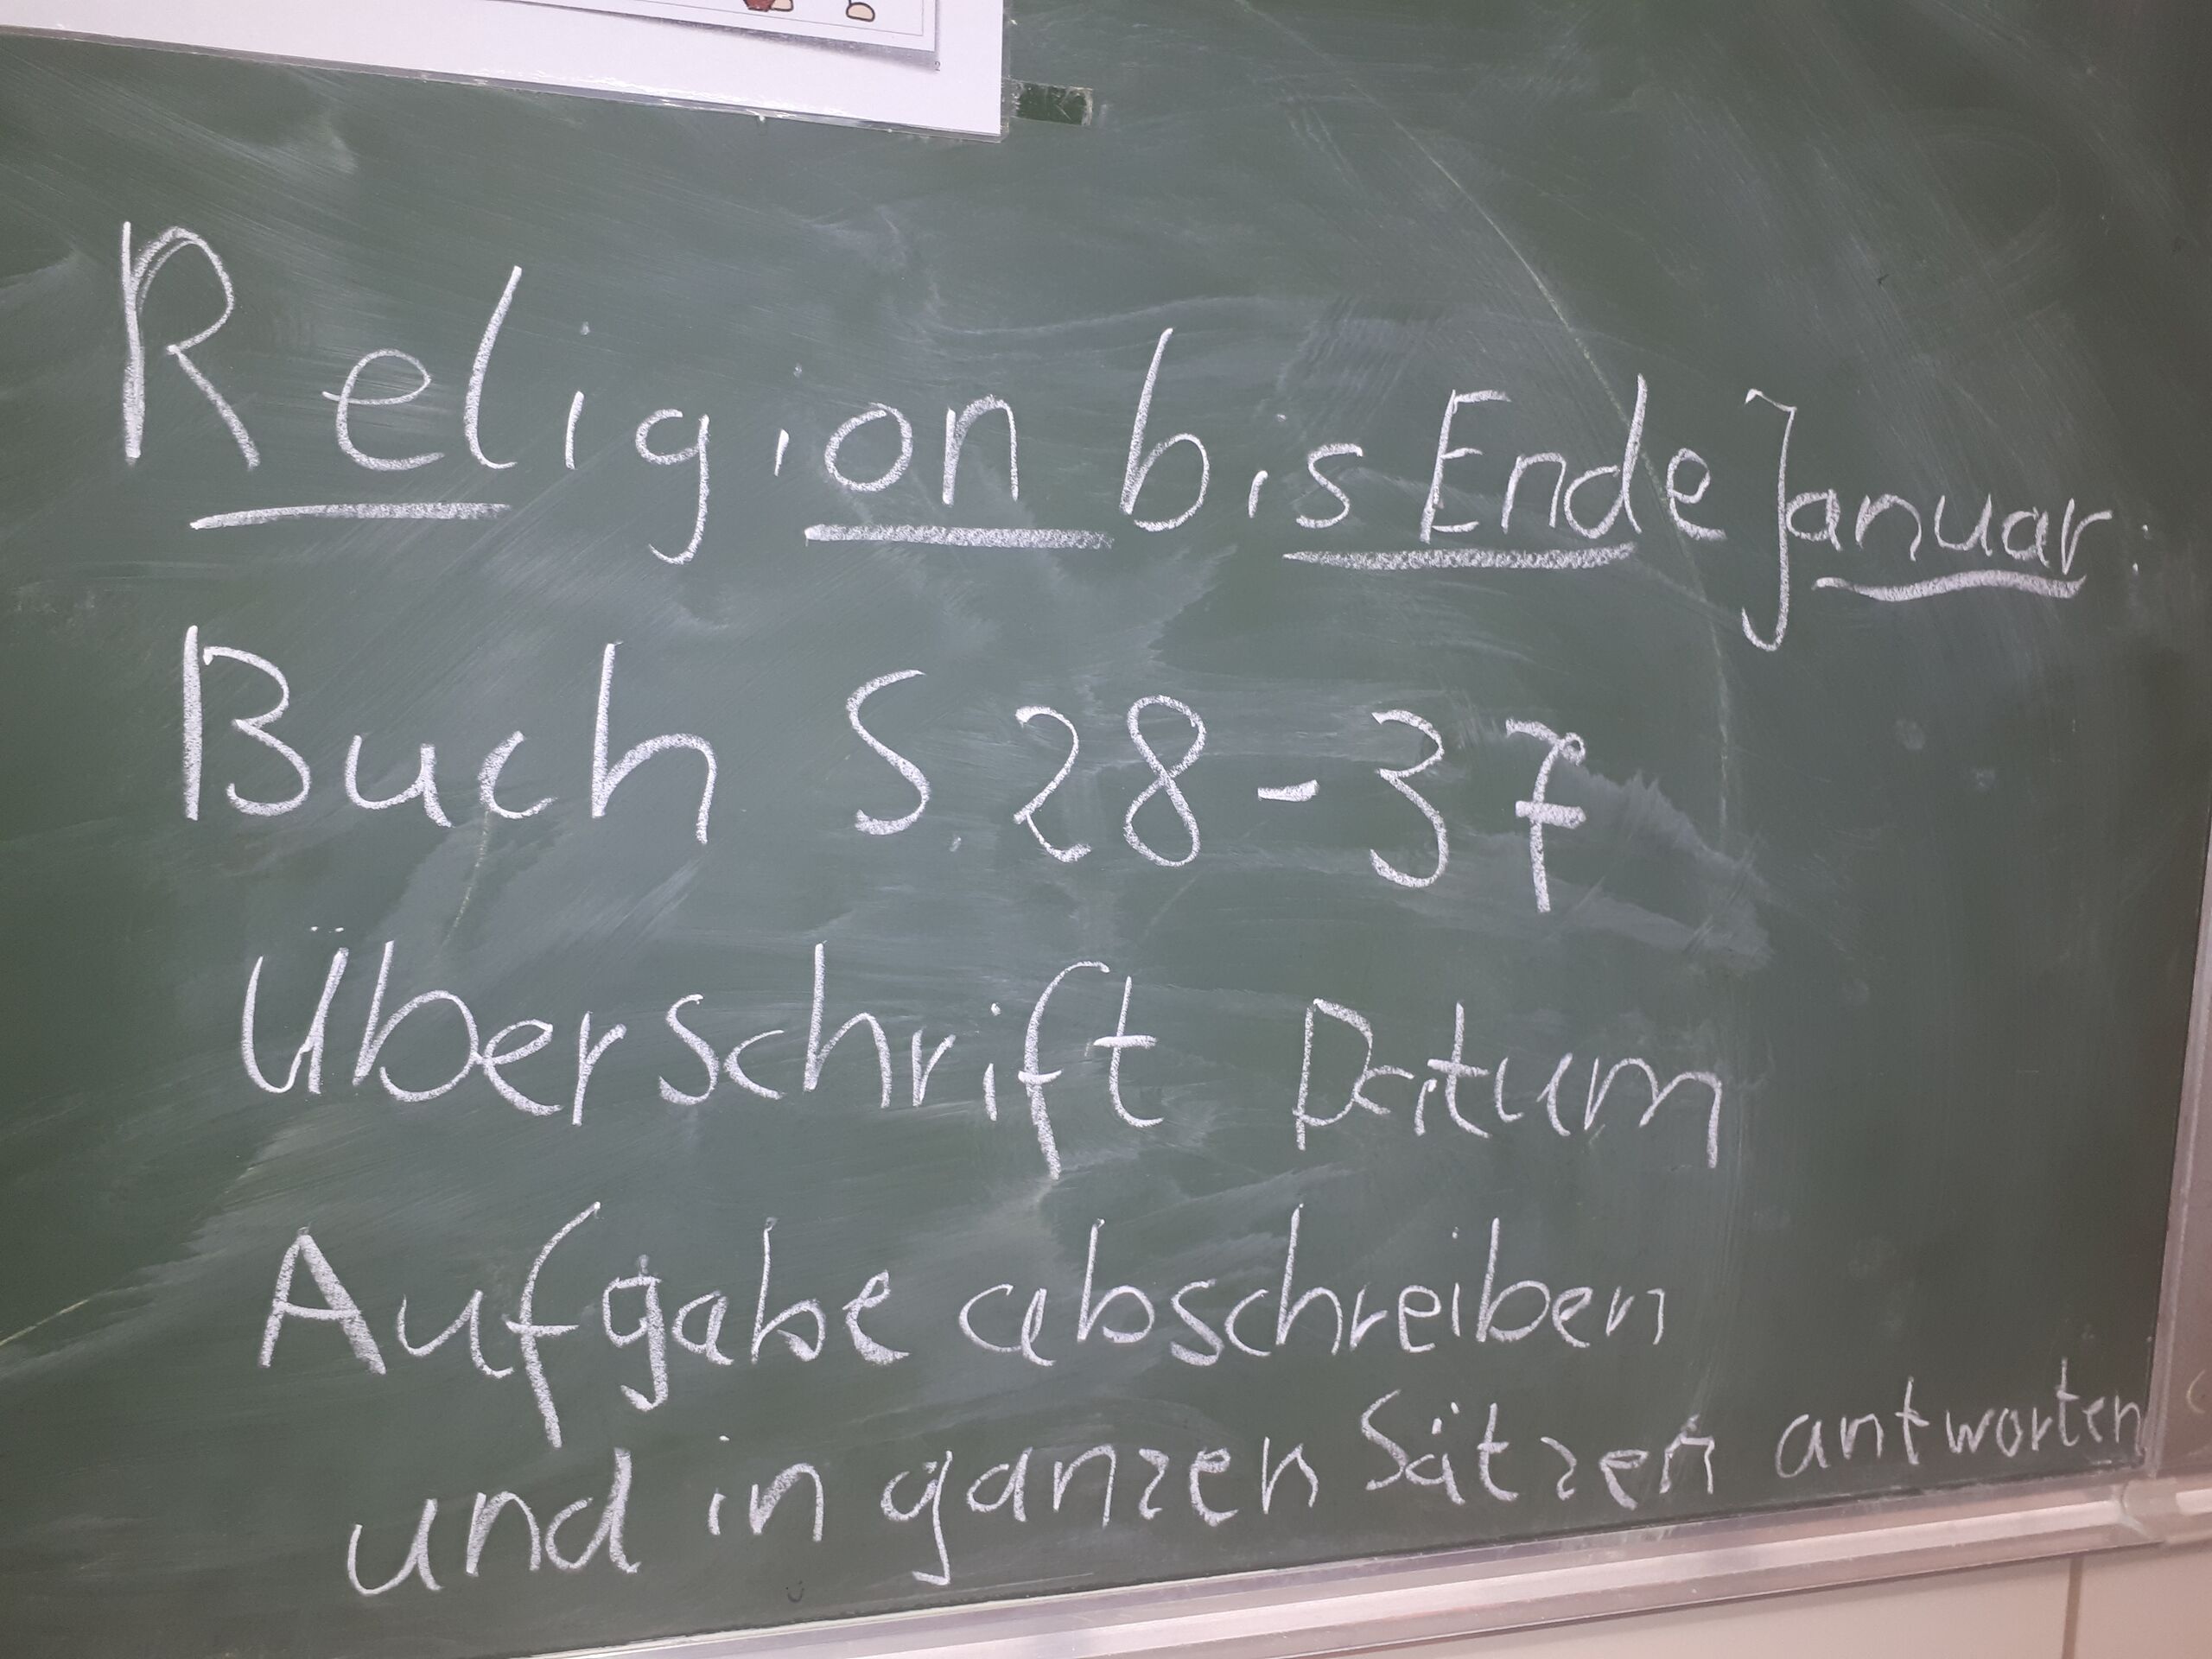 Religion bis Ende Januar:
Buch S. 28-37
Überschrift Datum
Aufgabe abschreiben
und in ganzen Sätzen antworten